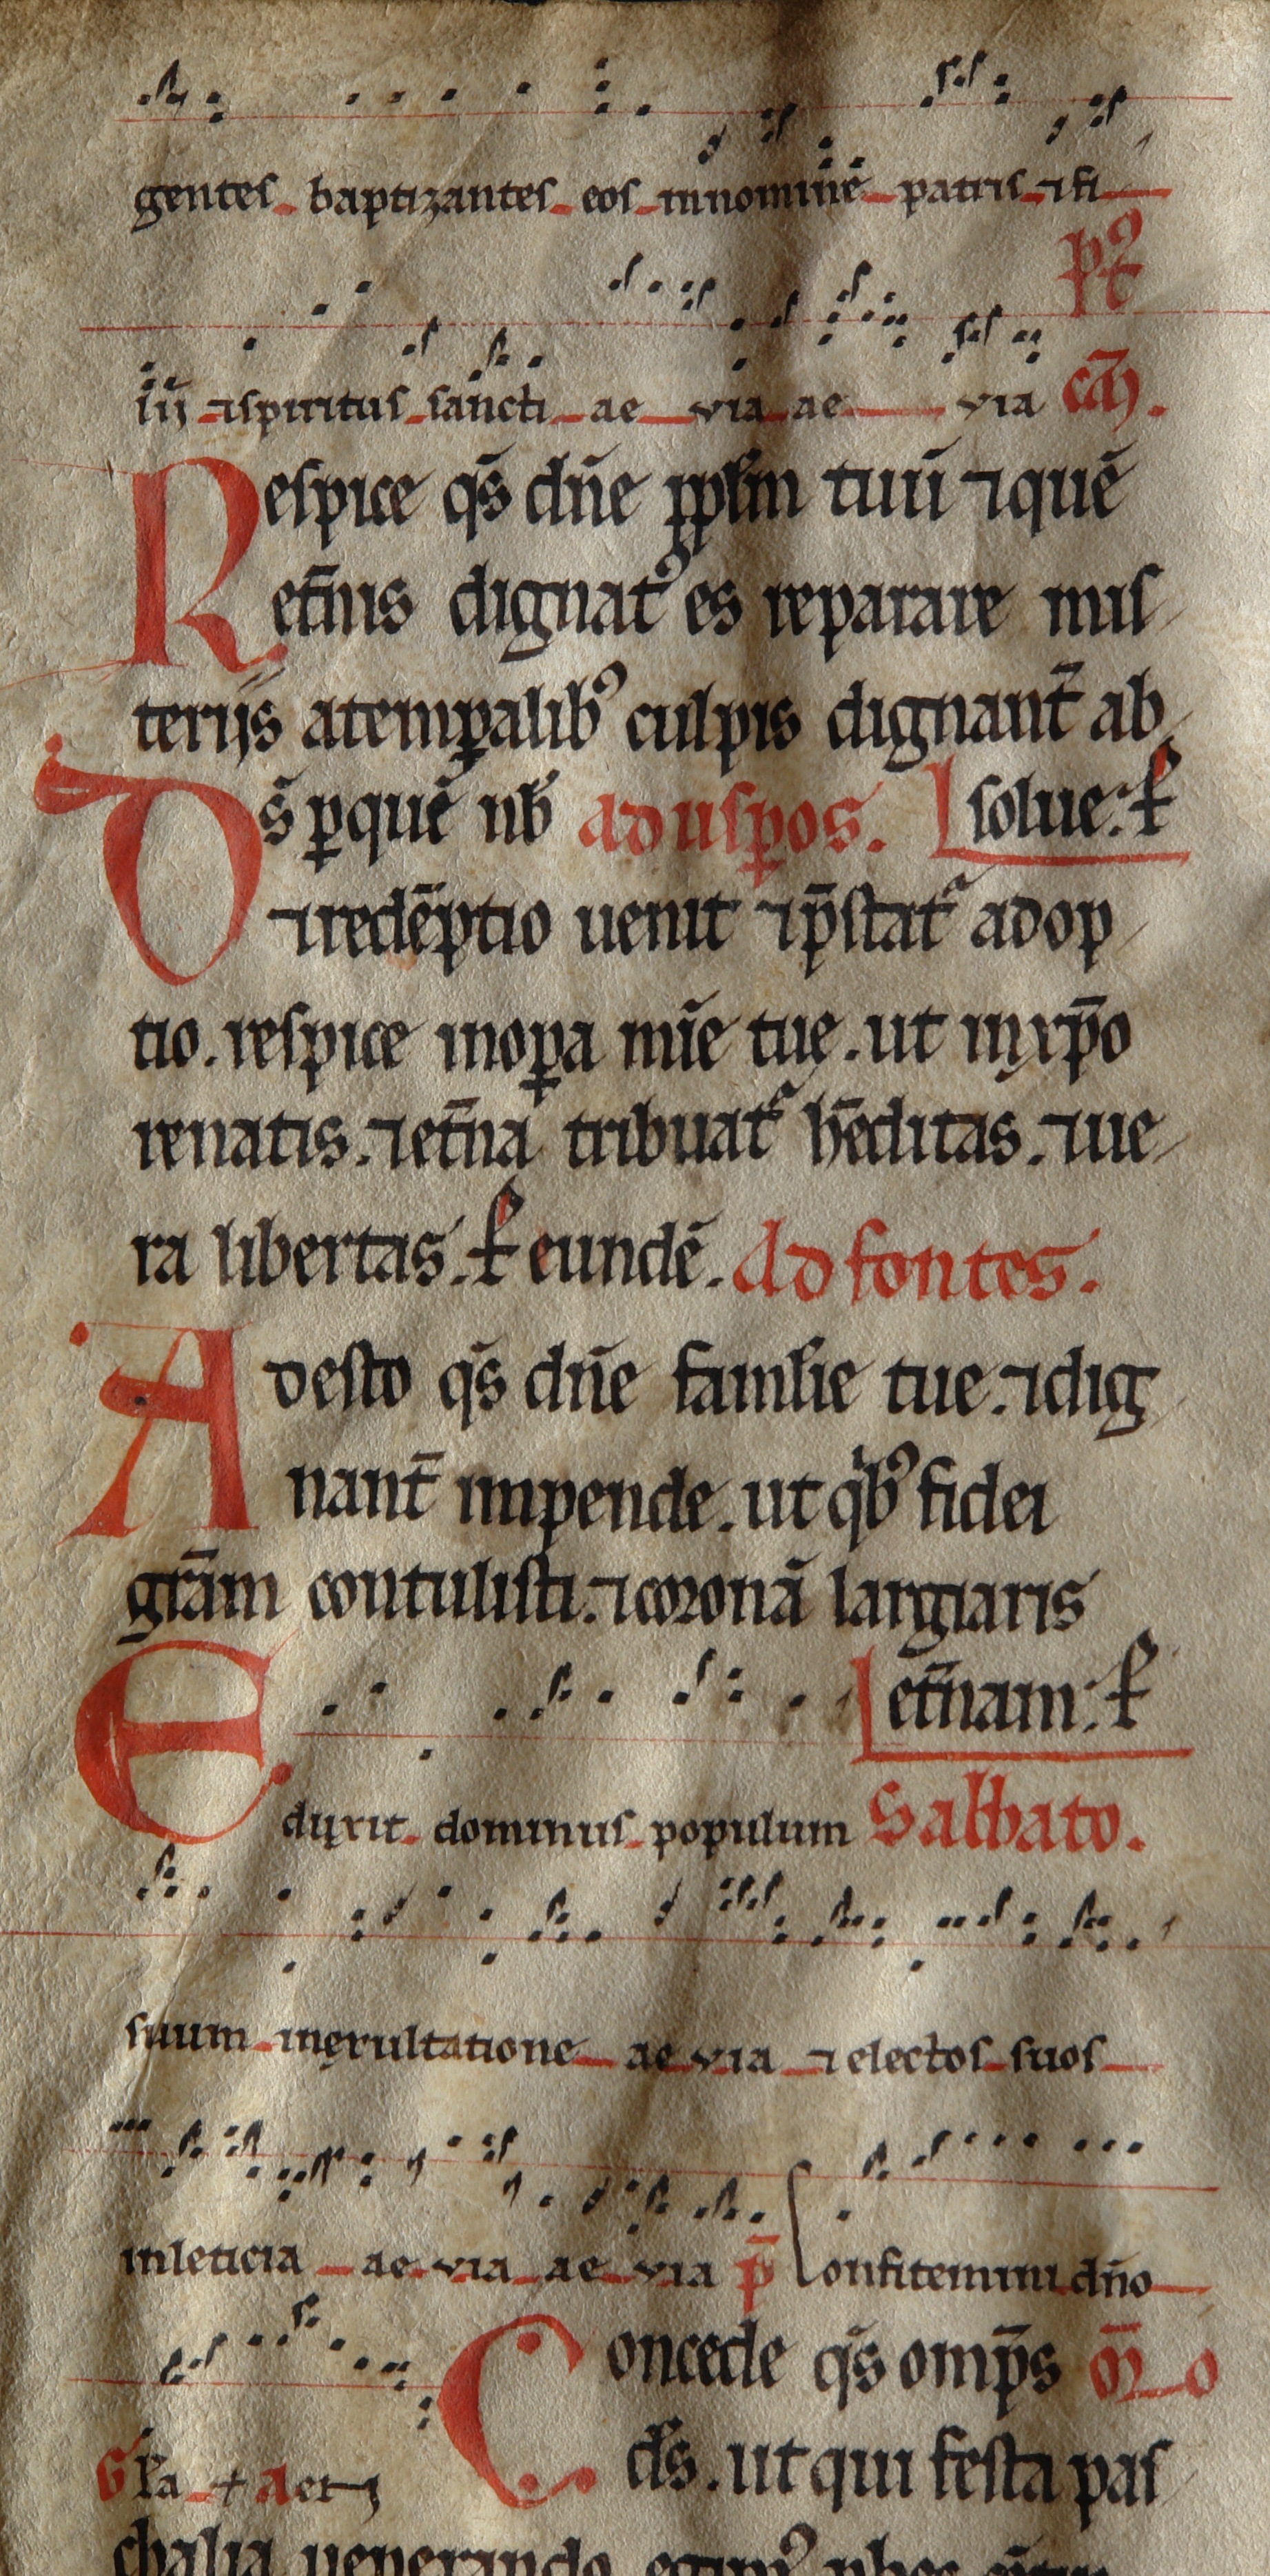 gentes baptizantes eos innomine patris ⁊ fi
p̄ꝰt
lii ⁊ spiritus sancti ae via ae via cōm.
Respice qs̄ dn̄e pplm̄ tuū ⁊ quē
et̄nis dignatꝰ es reparare mis
terijs atemꝑalibꝰ culpis dignant̄ ab
Ds̄ ꝑquē nb̄ ad uesꝑos. solue. ꝑ
⁊ redēptio uenit ⁊ p̄statᷣ adop
tio. respice inoꝑa mīe tuę. ut inxp̄o
renatis. ⁊ et̄na tribuatᷣ hēditas. ⁊ ue
ra libertas. ꝑ eundē. Ad fontes.
Adesto qs̄ dn̄e familie tue. ⁊ dig
nant̄ impende. ut qⁱbꝰ fidei
grām contulisti. ⁊ coronā largiaris
et̄nam. ꝑ
Eduxit dominus populum Sabbato.
suum inexultatione ae via ⁊ electos suos
inleticia ae via ae via p̄ Confitemini dn̄o
Concede qs̄ omp̄s
Gl̄a
ds̄. ut qui festa pas
chalia uenerando egimꝰ